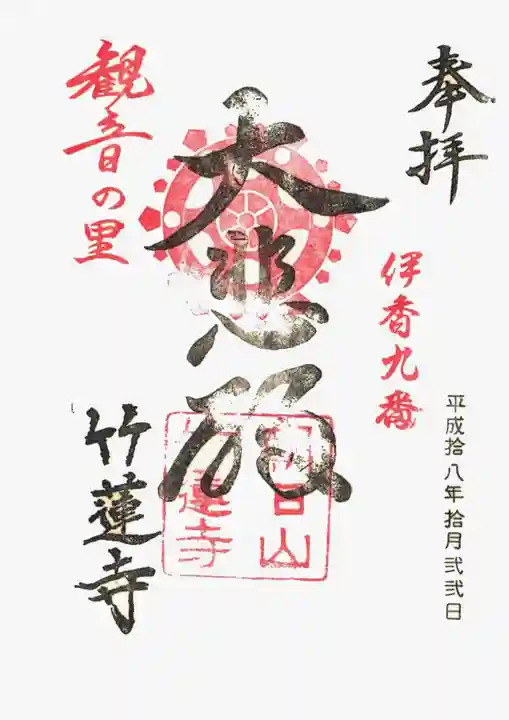 奉拝
伊香九番
平成拾八年拾月弐弐日
大悲殿
観音の里
竹蓮寺
日山
蓮寺